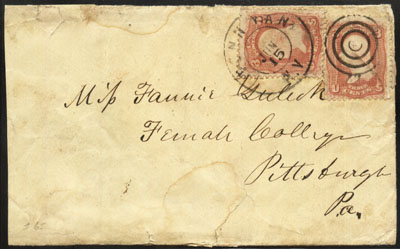 Miss Fannie Gulick
Female College
Pittsburgh
Pa.